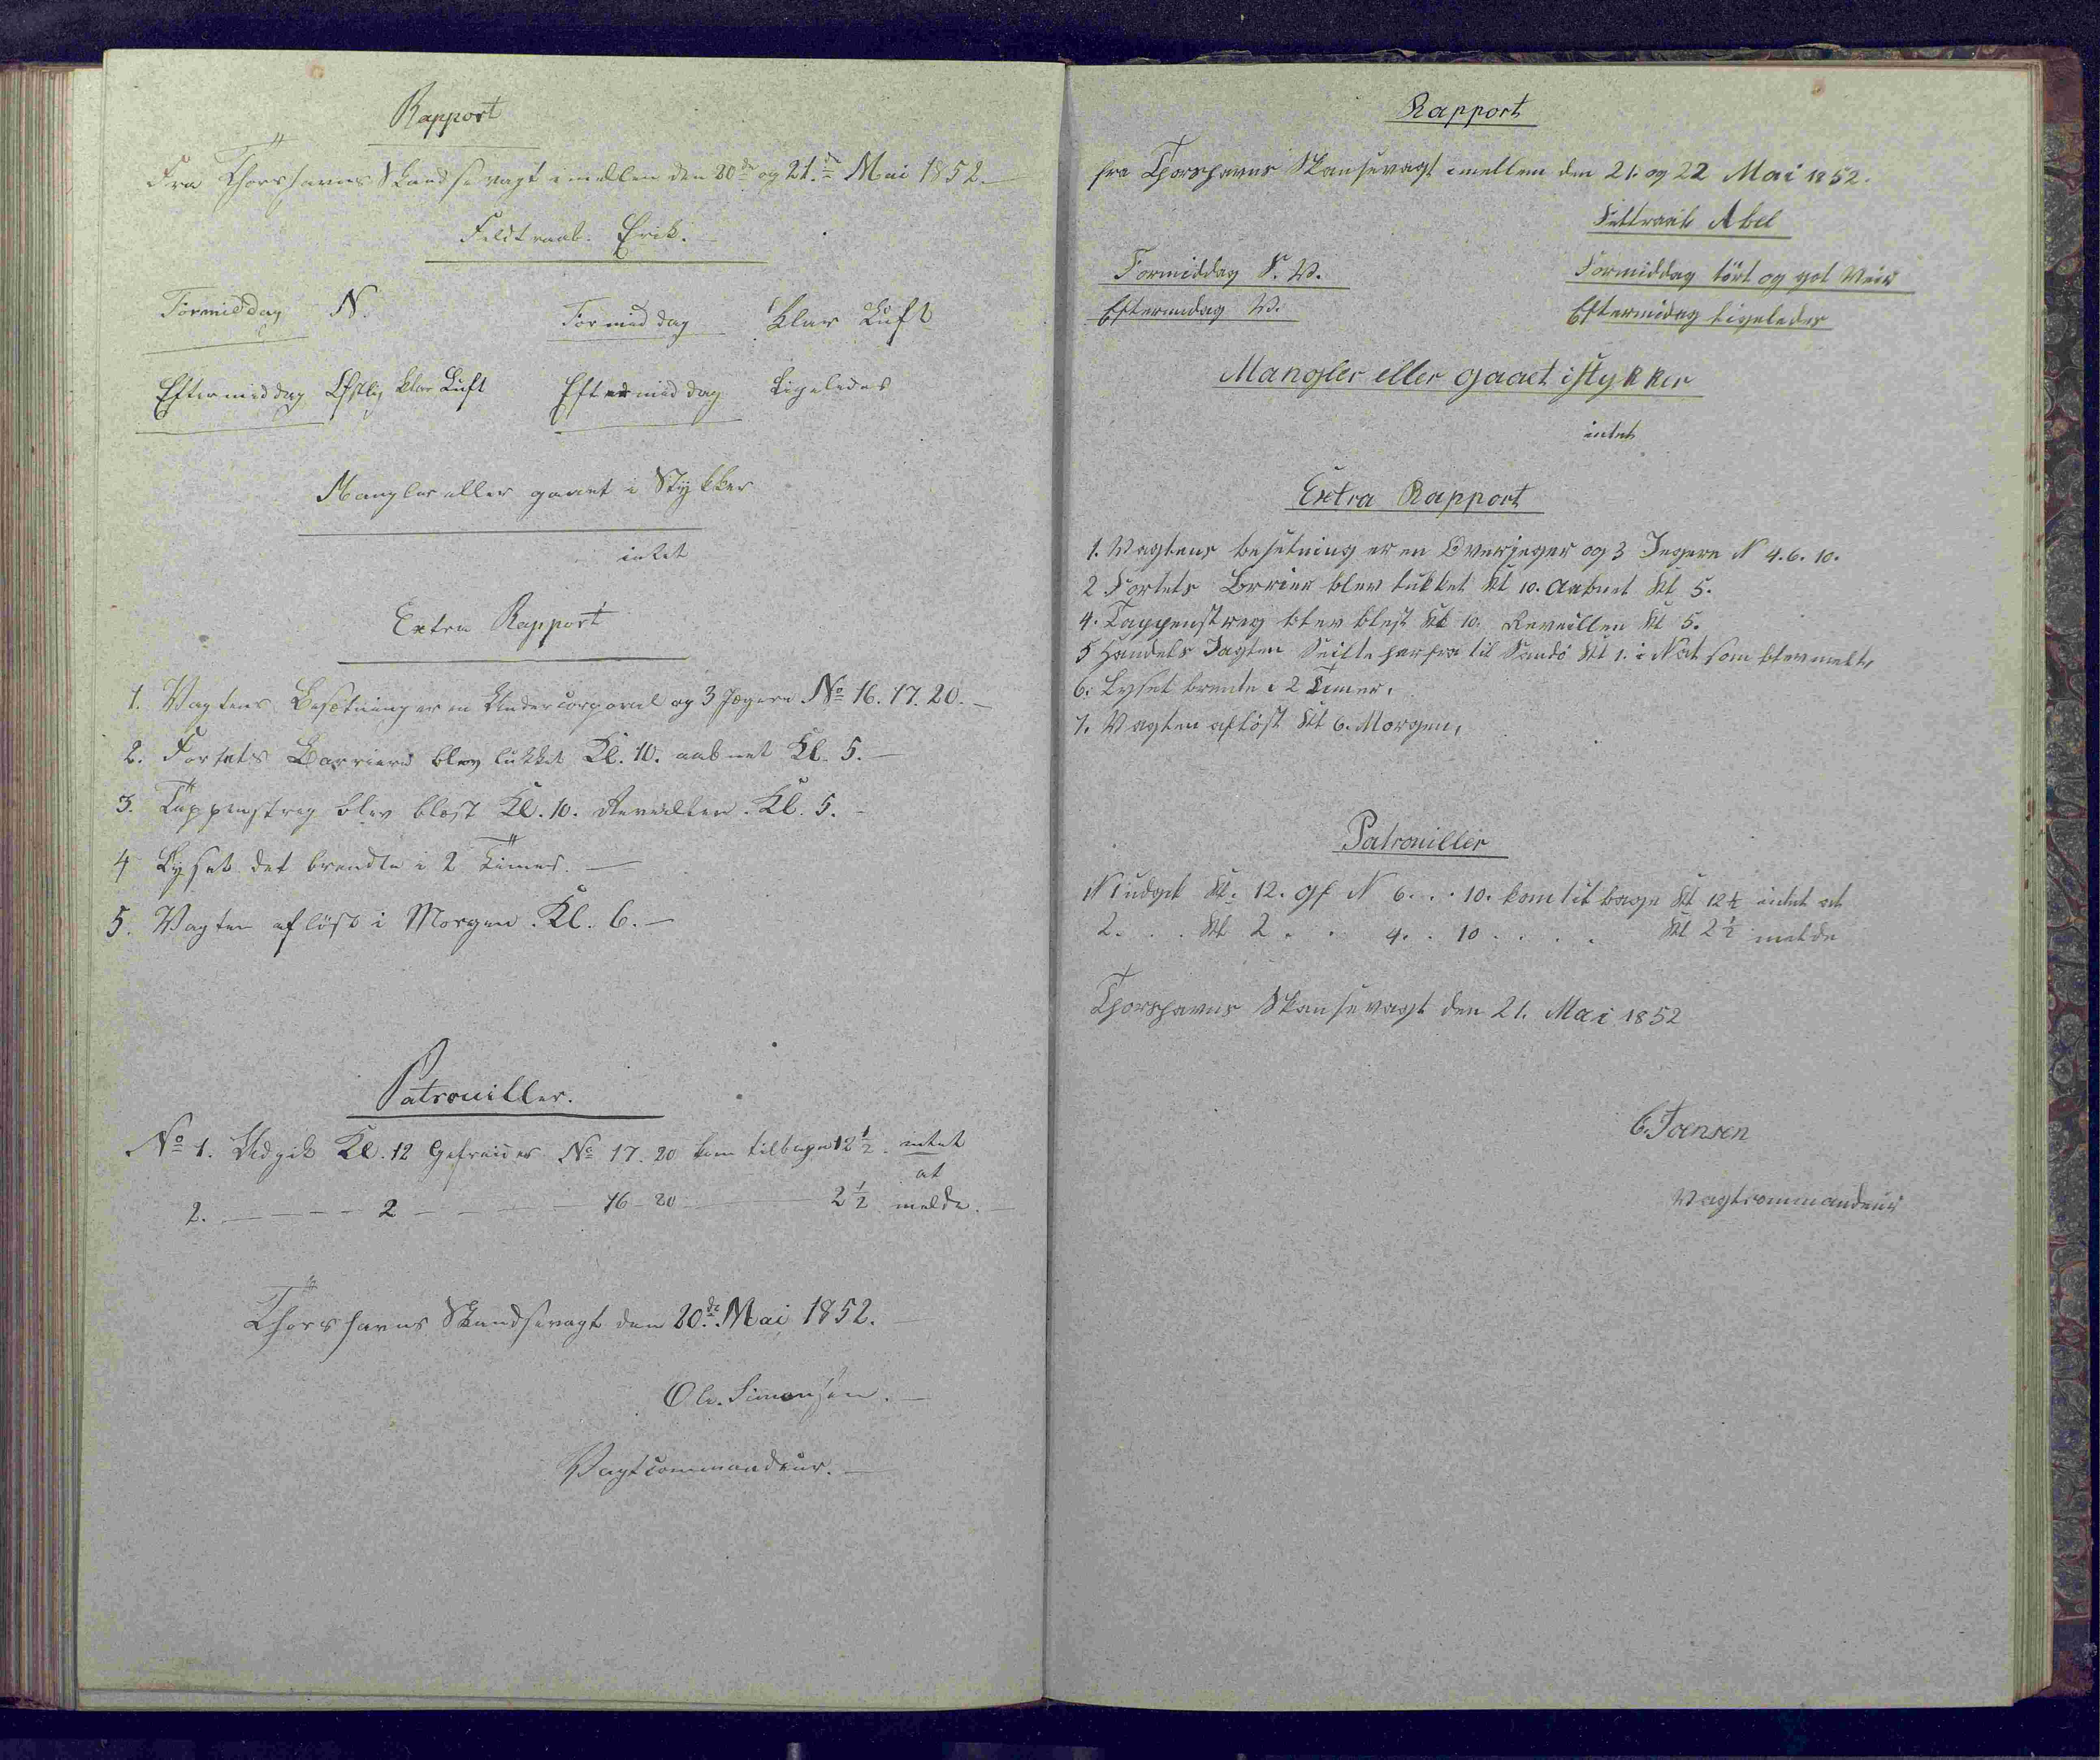 Rapport
Fra Thorshavns Skandsevagt imellem den 20de og 21de Mai 1852.
Feldtraab. Erik.
Formiddag N. Formiddag Klar Luft
Eftermiddag Østlig klar Luft Eftermiddag Ligeledes
Mangler eller gaaet i Stykker
intet
Extra Rapport
1. Vagtens Besetning er en Undercorporal og 3 Jægere No 16. 17. 20.
2. Fortets Barriere blev lukket Kl. 10. aabnet Kl. 5.
3. Tappenstreg blev blæst Kl. 10. Reveillen Kl. 5.
4 Lyset det brendte i 2 Timer.
5. Vagten afløst i Morgen Kl. 6.
Patrouiller.
No 1. Udgik Kl. 12 Gefreider No 17. 20 kom tilbage 12 1/2. intet
at
2. - - - - 2 - - - - 16 - 20 - 2 1/2 melde.
Thorshavns Skandsevagt den 20de Mai 1852.
Ole. Simonsen.
Vagtcommandeur.
Rapport
fra Thorshavns Skansevagt imellem den 21. og 22 Mai 1852.
Feltraab Abel
Formiddag S. W. Formiddag tört og got Veir
Eftermidag W. Eftermidag ligeledes
Mangler eller gaaet istykker
intet
Extra Rapport
1. Vagtens besetning er en Overjeger og 3 Jegere N 4. 6. 10.
2 Fortets Brrier blev lukket Kl 10. Aabnet Kl 5.
4. Tappenstreg blev blest Kl 10. Reveillen Kl 5.
5 Handels Jagten Seilte herfra til Sandö Kl 1. i Nat som blev melt,
6. Lyset brente i 2 Timer.
7. Vagten aflöst Kl 6. Morgen,
Patrouiller
N 1 udgik Kl. 12. Gf N 6. . . 10. kom til bage Kl 12 1/2 intet at
2. . . Kl 2 . . 4. . 10 . . . . Kl 2 1/2 melde
Thorshavns Skansevagt den 21. Mai 1852
Joensen
Vagtcommandeur